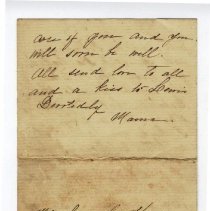 are if your and you
will soon be well.
All send love to all
and a kiss to Lewis
Devotedly
Mama